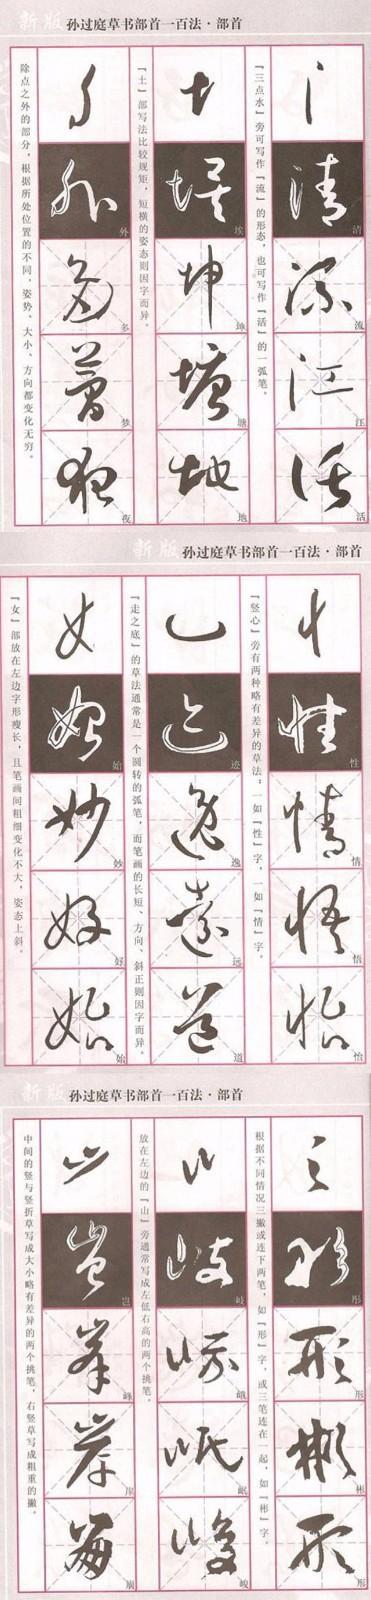 新版 孙过庭草书部首一百法·部首
『三点水』旁可写作『流』的形态，也可写作『活』的一弧笔。
清
流
江
活
『土』部写法比较规矩，短横的姿态则因字而异。
埃
坤
塘
地
除点之外的部分，根据所处位置的不同，姿势、大小、方向都变化无穷。
外
多
梦
夜
新版 孙过庭草书部首一百法·部首
『竖心』旁有两种略有差异的草法：一如『性』字，一如『情』字。
性
情
悟
怡
『走之底』的草法通常是一个圆转的弧笔，而笔画的长短、方向、斜正则因字而异。
迹
逸
远
道
『女』部放在左边字形瘦长，且笔画间粗细变化不大，姿态上斜。
始
妙
好
始
新版 孙过庭草书部首一百法·部首
根据不同情况三撇或连下两笔，如『形』字，或三笔连在一起，如『彬』字。
彤
形
彬
形
放在左边的『山』旁通常写成左低右高的两个挑笔。
岐
峨
岷
峻
中间的竖与竖折草写成大小略有差异的两个挑笔，右竖草写成粗重的撇。
岂
峰
岸